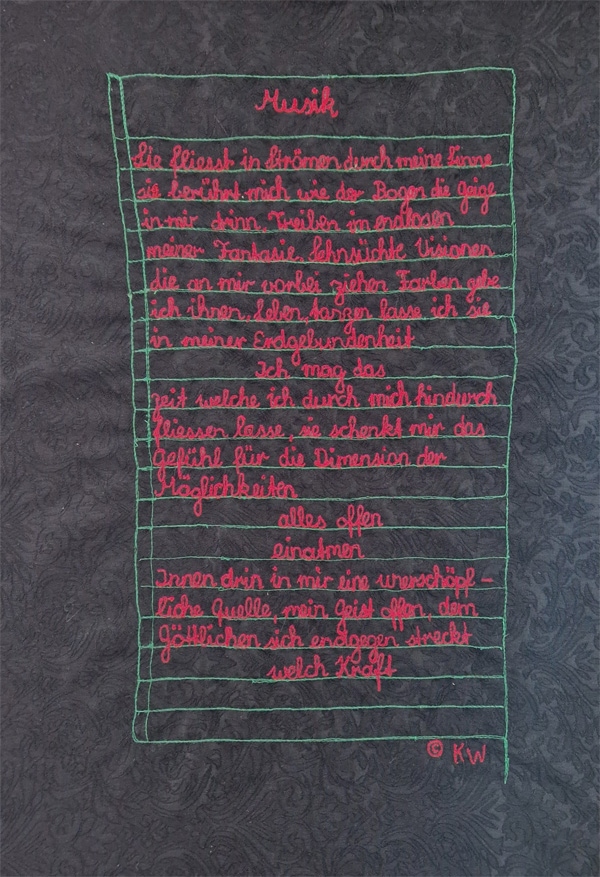 Musik
Sie fliesst in Strömen durch meine Sinne
sie berührt mich wie der Bogen die Geige
in mir drinn, Treiben im endlosen
meiner Fantasie, Sehnsüchte Visionen
die an mir vorbei ziehen Farben gebe
ich ihnen, leben, tanzen lasse ich sie
in meiner Erdgebundenheit
Ich mag das
zeit welche ich durch mich hindurch
fliessen lasse, sie schenkt mir das
Gefühl für die Dimension der
Möglichkeiten
alles offen
einatmen
Innen drin in mir eine unerschöpf-
liche Quelle, mein Geist offen, dem
Göttlichen sich endgegen streckt
welch Kraft
© KW